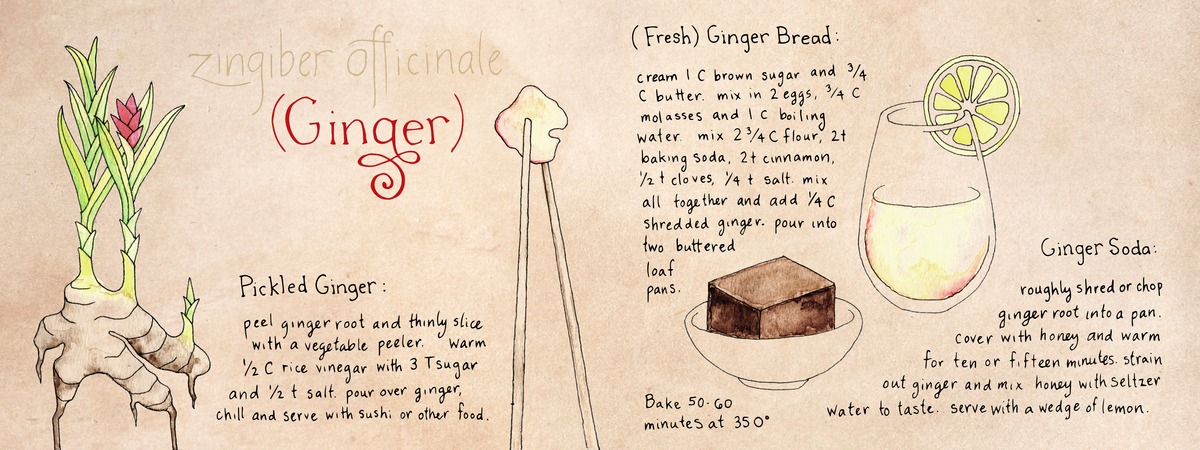 zingiber officinale
(Ginger)
Pickled Ginger:
peel ginger root and thinly slice
with a vegetable peeler. Warm
1/2 C rice vinegar with 3 T sugar
and 1/2 t salt. pour over ginger,
chill and serve with sushi or other food.
(Fresh) Ginger Bread:
cream 1 C brown sugar and 3/4
C butter. mix in 2 eggs, 3/4 C
molasses and 1 C boiling
water. mix 2 3/4 C flour, 2t
baking soda, 2t cinnamon,
1/2 t cloves, 1/4 t salt. mix
all together and add 1/4 C
shredded ginger. pour into
two buttered
loaf
pans.
Bake 50-60
minutes at 350°
Ginger Soda:
roughly shred or chop
ginger root into a pan.
cover with honey and warm
for ten or fifteen minutes. strain
out ginger and mix honey with seltzer
water to taste. serve with a wedge of lemon.